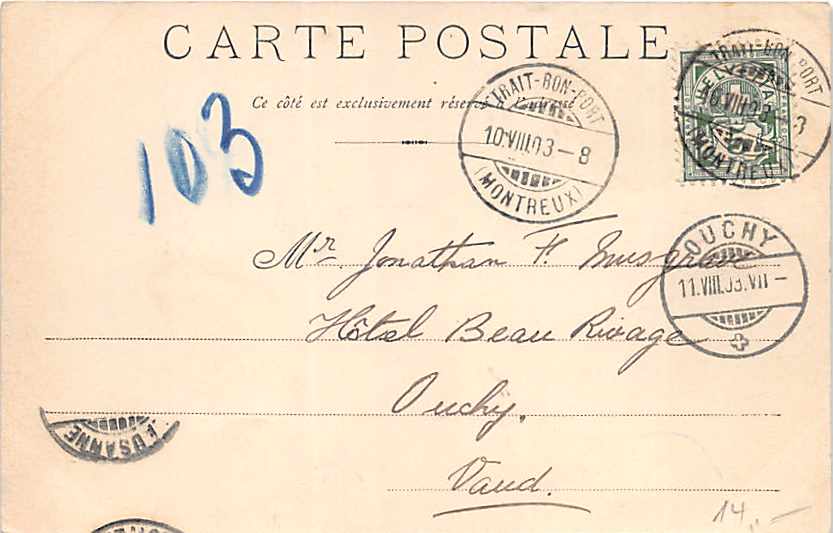 CARTE POSTALE
Ce côté est exclusivement réservé à l'adresse
103
TRAIT-BON-PORT
10.VIII.03-8
(MONTREUX)
TRAIT-BON-PORT
10.VIII.03-8
(MONTREUX)
HELVETIA
Mr. Jonathan F. Musgrave
OUCHY
11.VIII.03.VII-
Hôtel Beau Rivage
Ouchy.
Vaud.
LAUSANNE
14,-